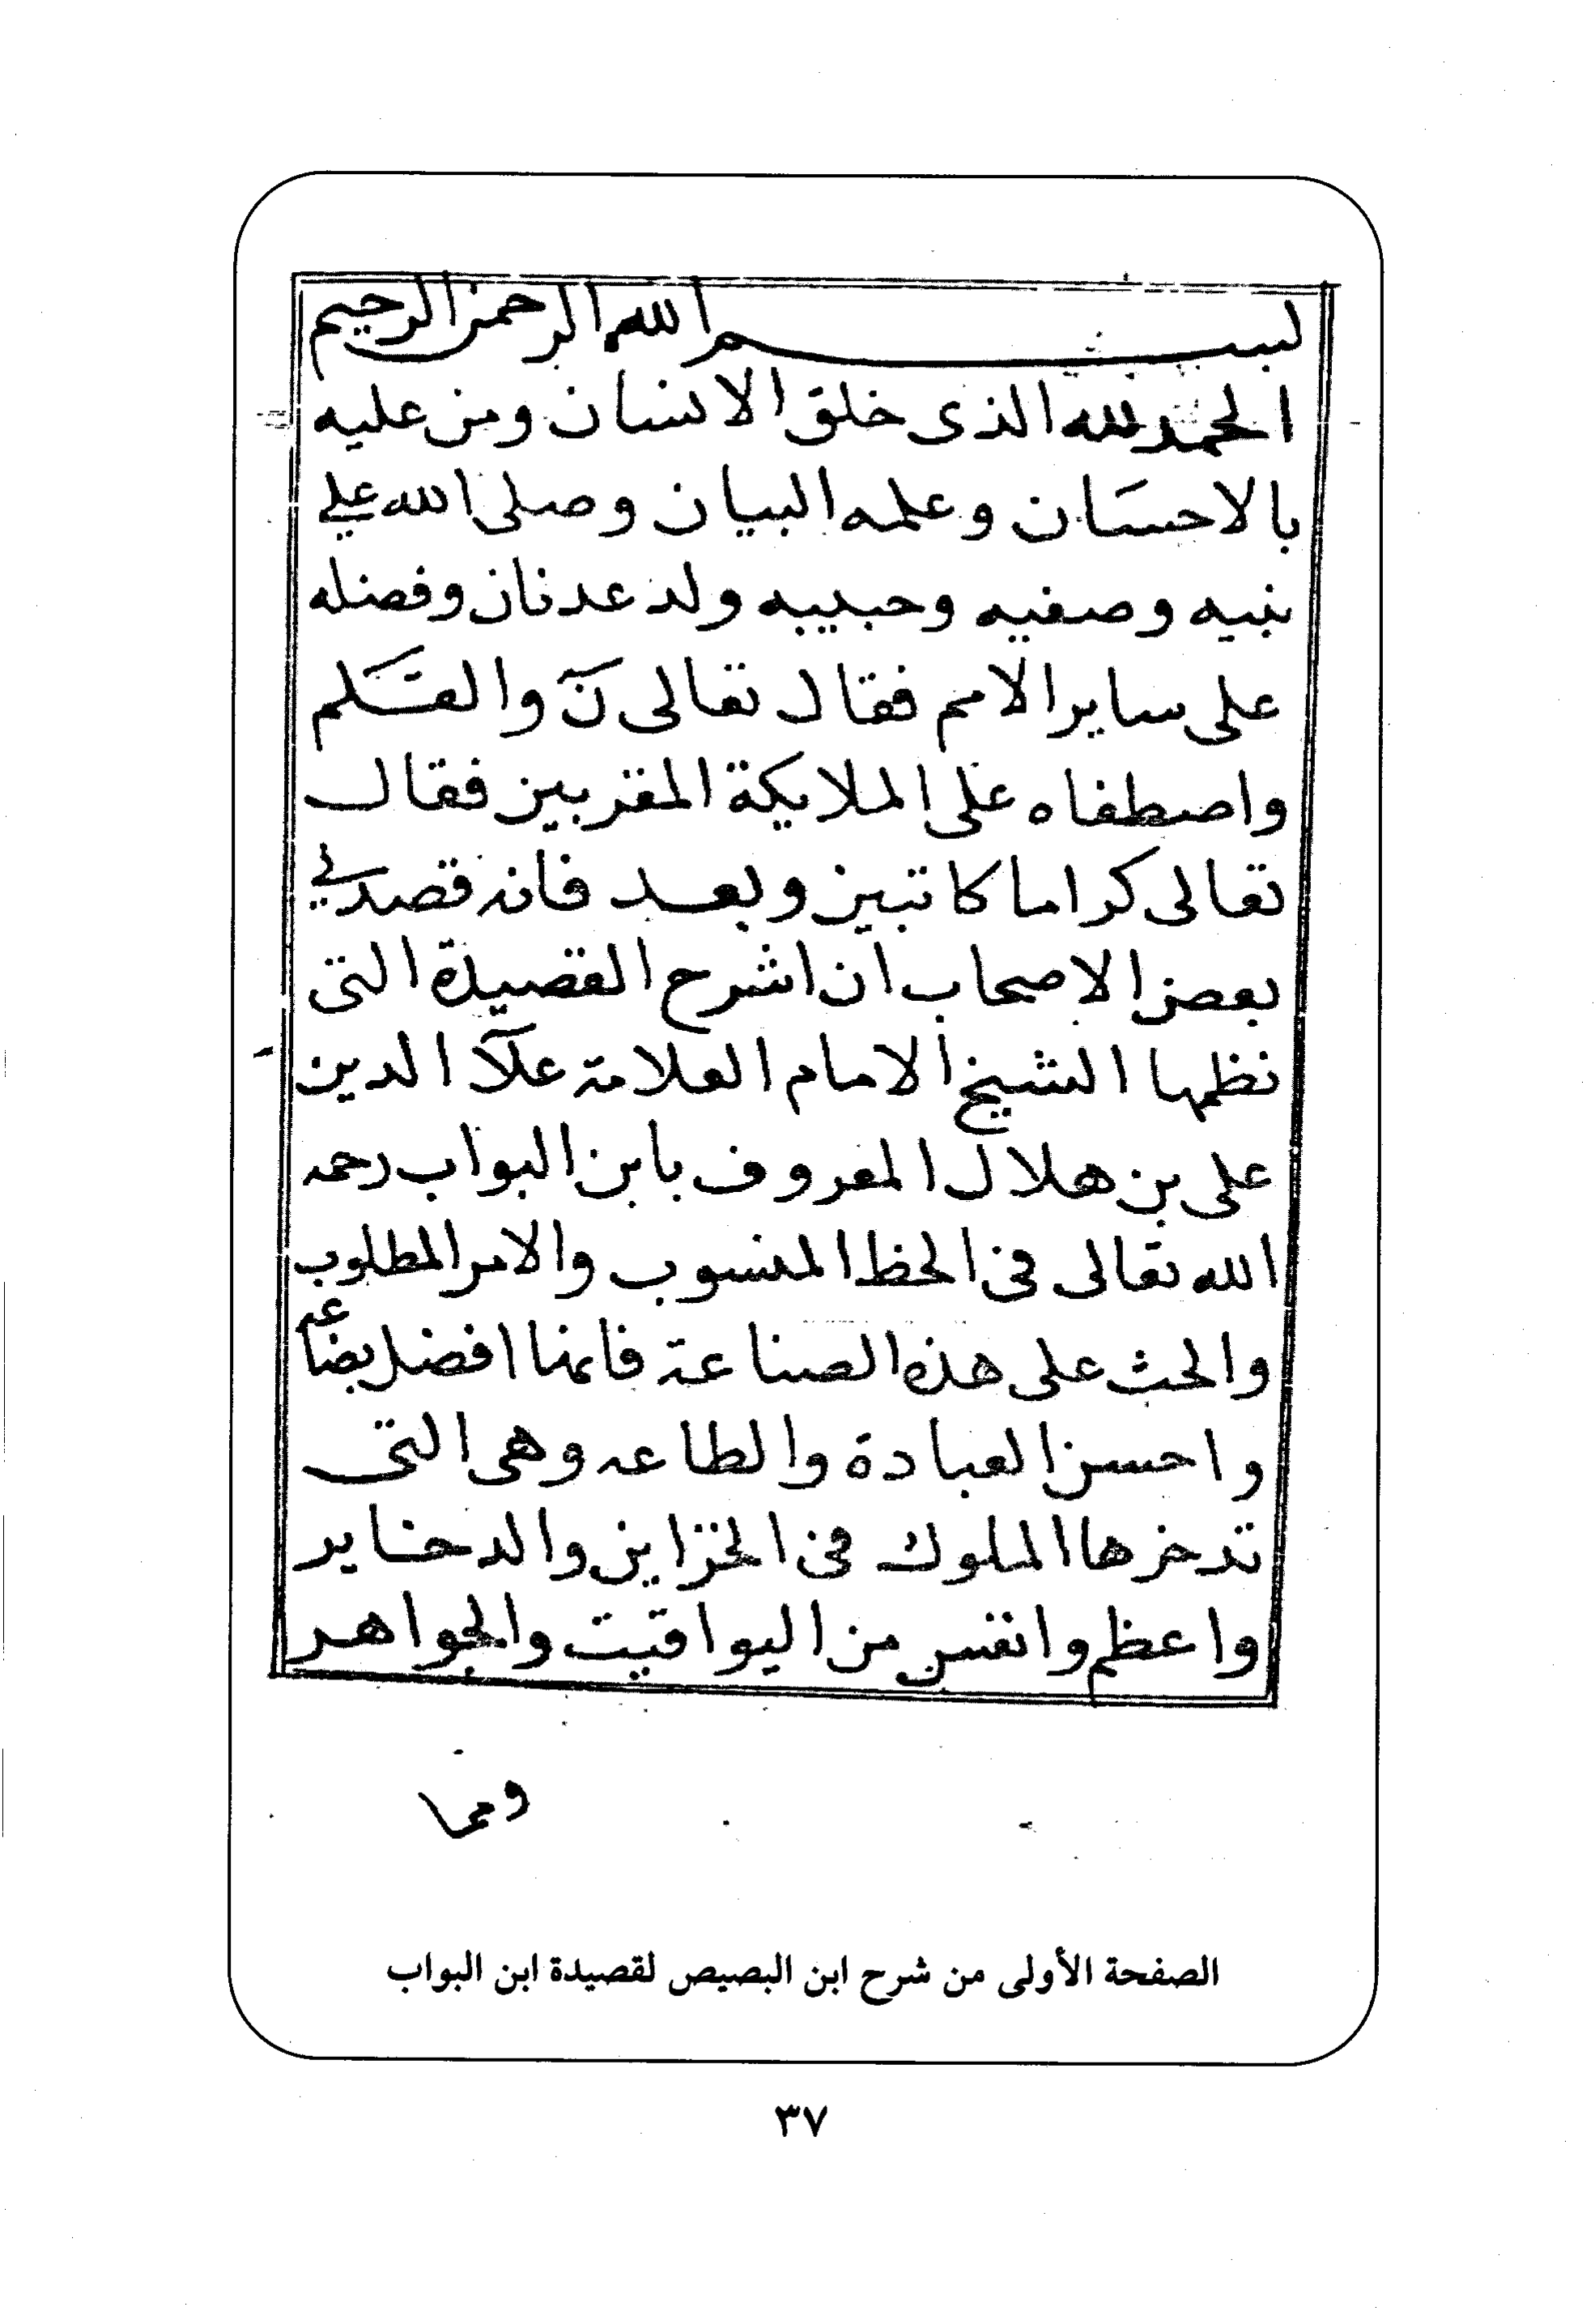 بسم الله الرحمن الرحيم
الحمد لله الذى خلق الانسان ومن عليه
بالاحسان وعلمه البيان وصلى الله على
نبيه وصفيه وحبيبه ولد عدنان وفضله
على ساير الامم فقال تعالى نٓ والقلم
واصطفاه على الملايكة المقربين فقال
تعالى كراما كاتبين وبعد فانه قصدني
بعض الاصحاب ان اشرح القصيدة التى
نظمها الشيخ الامام العلامة علآ الدين
على بن هلال المعروف بابن البواب رحمه
الله تعالى فى الخط المنسوب والامر المطلوب
والحث على هذه الصناعة فانها افضل بضاعه
واحسن العبادة والطاعه وهى التى
تدخرها الملوك فى الخزاين والدخاير
واعظم وانفس من اليواقيت والجواهر
ومما
الصفحة الأولى من شرح ابن البصيص لقصيدة ابن البواب
٣٧